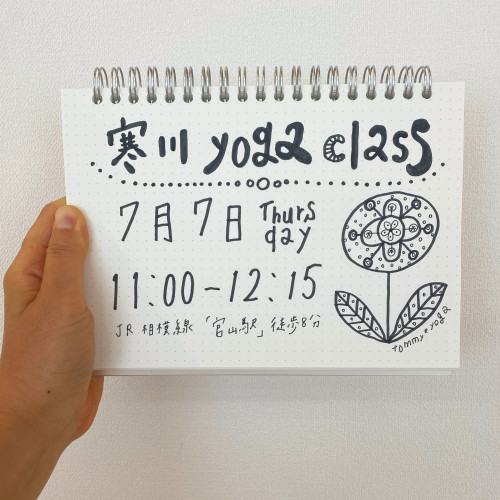 寒川 yoga class
7月7日 Thursday
11:00-12:15
JR 相模線 「宮山駅」徒歩8分
tommy*yoga